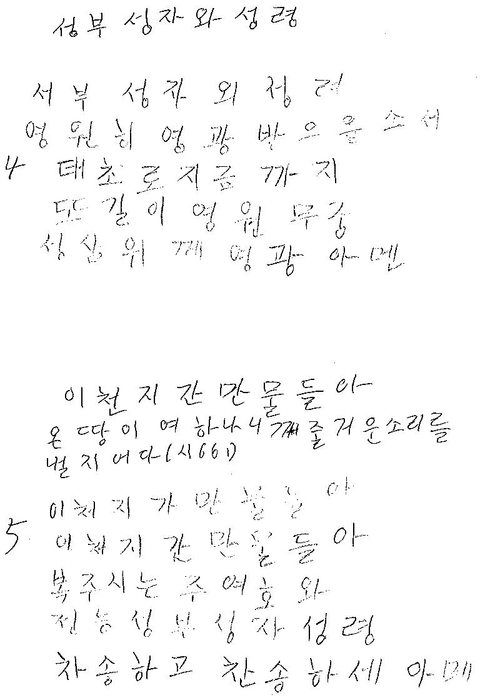 성부 성자와 성령
서부 성자 외 정려
영원히 영광 받으올소서
4 태초로지금까지
또길이영원무궁
성삼위께 영광 아멘
이천지간만물들아
온땅이여하나니께줄거운소리를
벌지어다(시661)
이처지가만물들아
5 이천지간만물들아
복주시는주여호와
전능성부성자성령
차송하고 찬송하세 아메